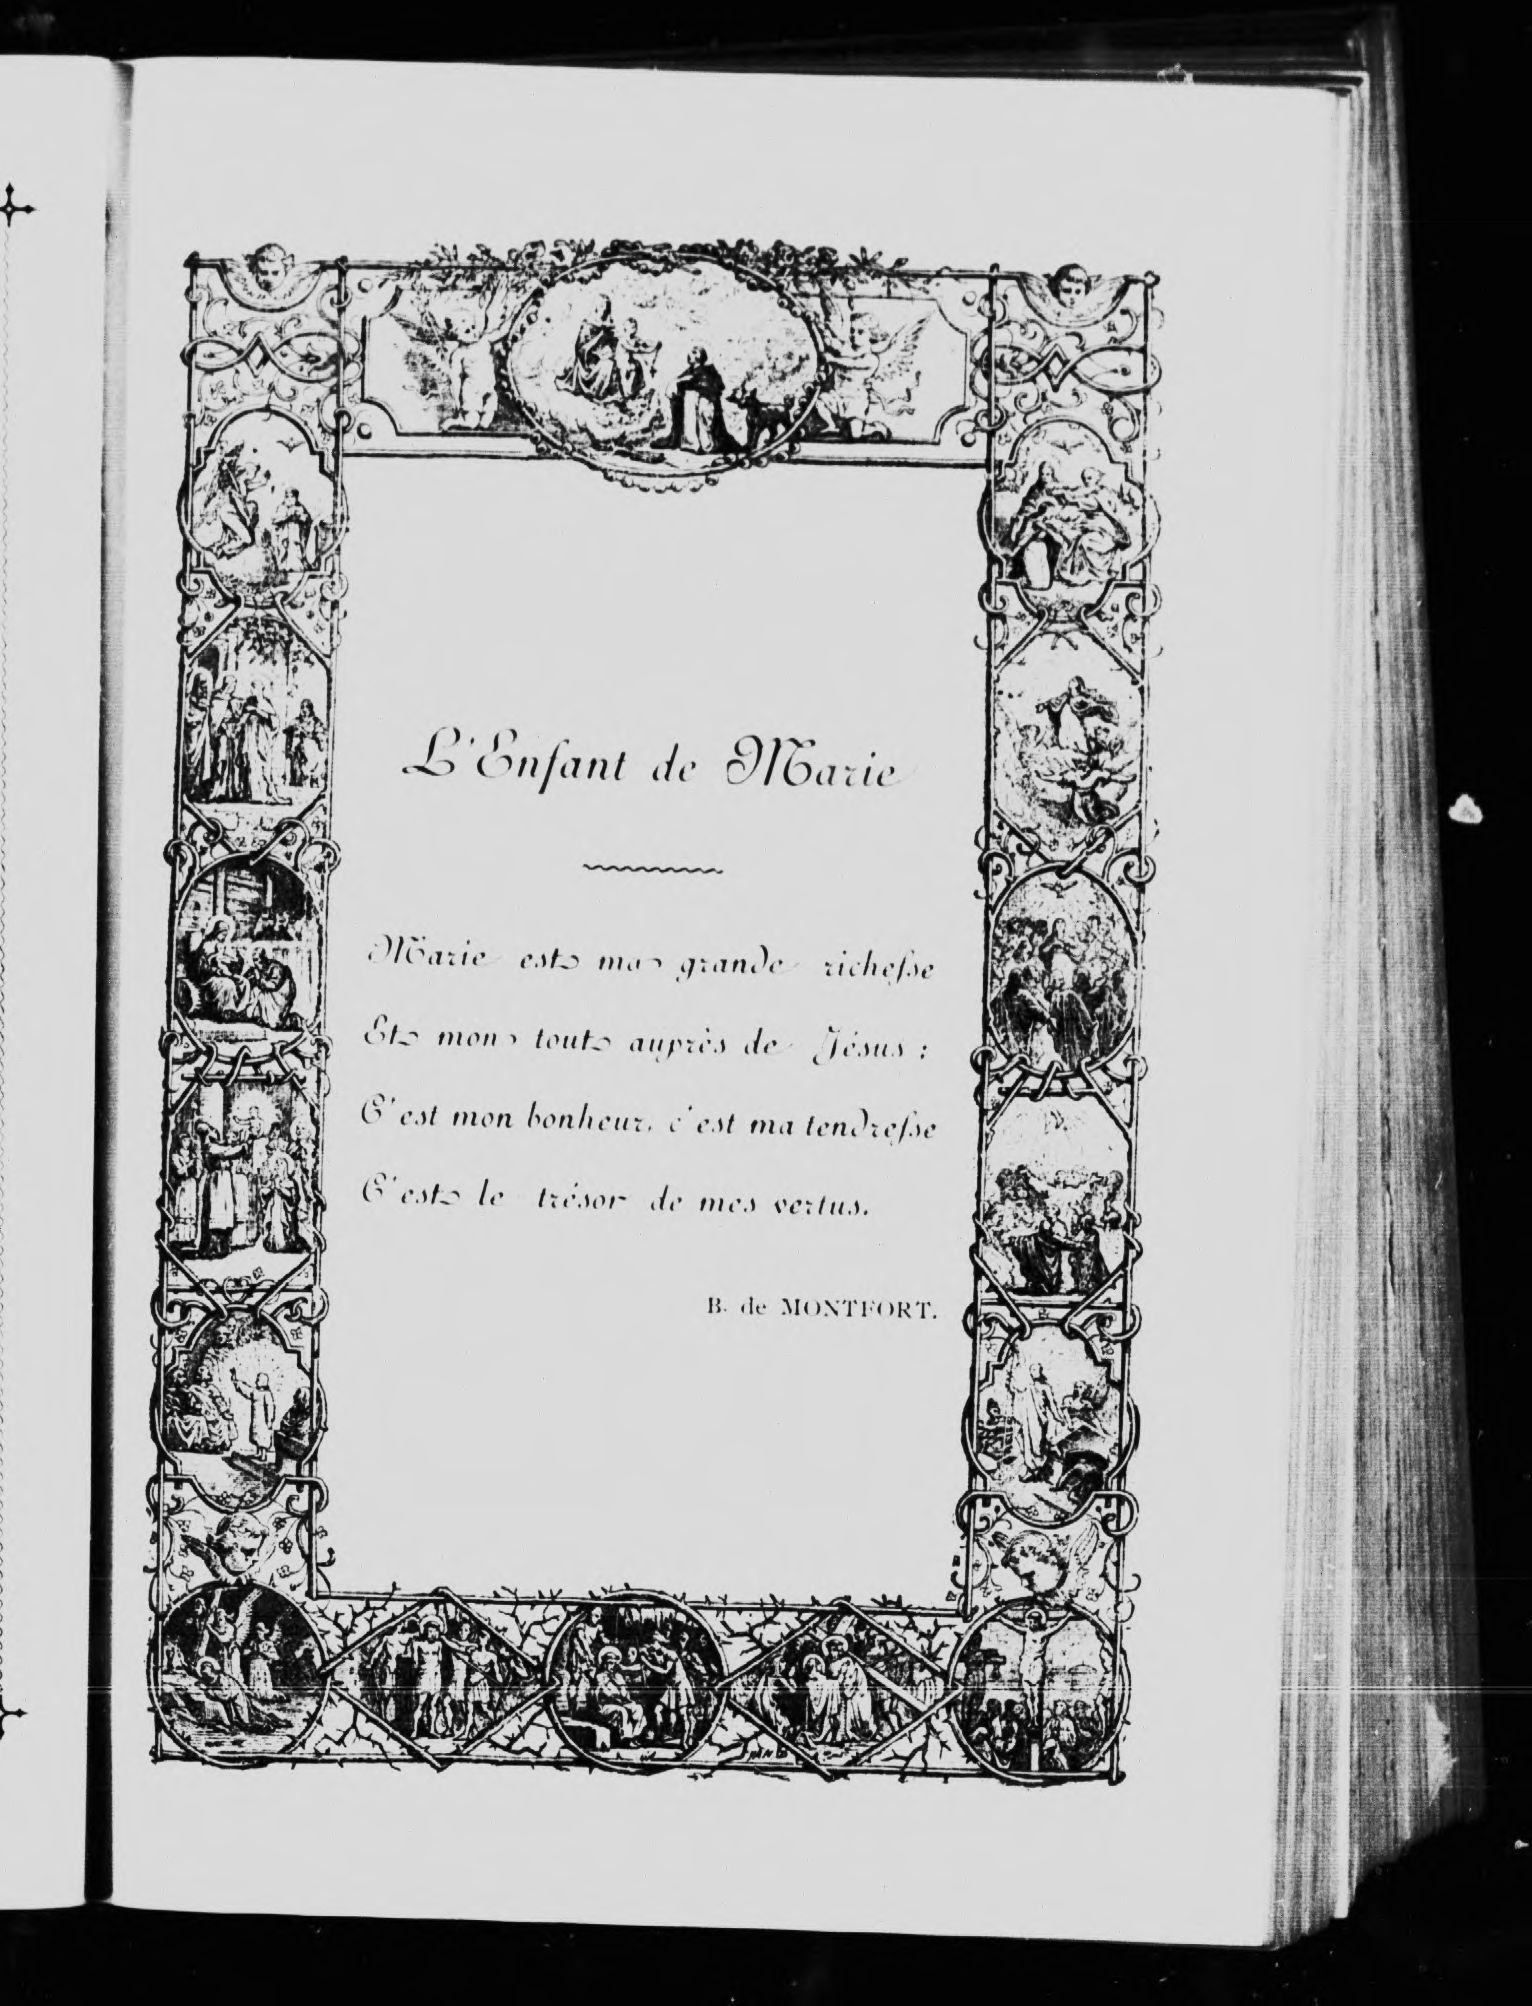 L'Enfant de Marie
Marie est ma grande richesse
Et mon tout auprès de Jésus :
C'est mon bonheur, c'est ma tendresse
C'est le trésor de mes vertus.
B. de MONTFORT.